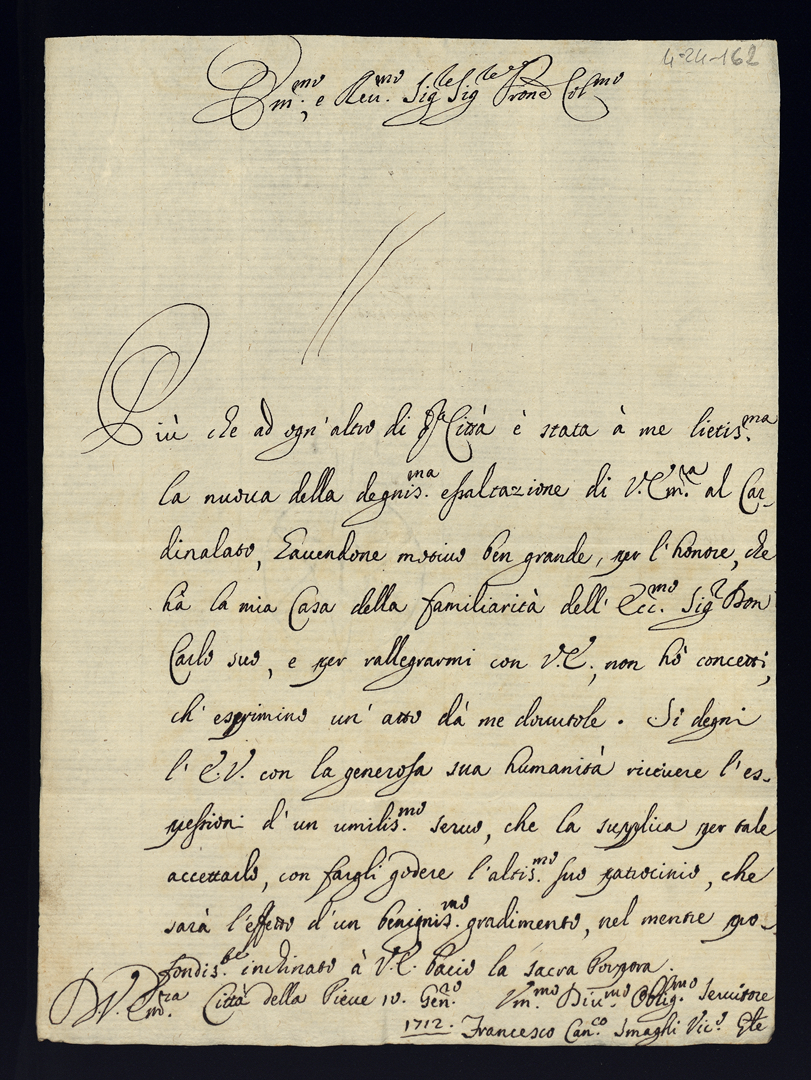 4-24-162
Em.mo, e Reu.mo Sig.re Sig.re Prone Col.mo
Più che ad ogn' altro di q.ta Città è stata à me lietis.ma
la nuoua della degnis.ma essaltazione di V. Em.a al Car-
dinalato, hauendone motiuo ben grande, per l'honore, che
hà la mia Casa della familiarità dell' Ecc.mo Sig.r Don
Carlo suo, e per rallegrarmi con V.E., non hò concetti,
ch' esprimino un' atto dà me douutole. Si degni
l' E.V. con la generosa sua humanità riceuere l'es-
pessioni d' un umilis.mo seruo, che la supplica per tale
accettarlo, con fargli godere l'altis.mo suo patrocinio, che
sarà l'effetto d'un benignis.mo gradimento, nel mentre pro-
fondis.te inchinato à V.E. bacio la sacra Porpora.
D. V. Em.ra Città della Pieue 10. Gen.ro Um.mo Diu.mo Oblig.mo Seruitore
1712. Francesco Can.co Smaghi Vic.o Gle